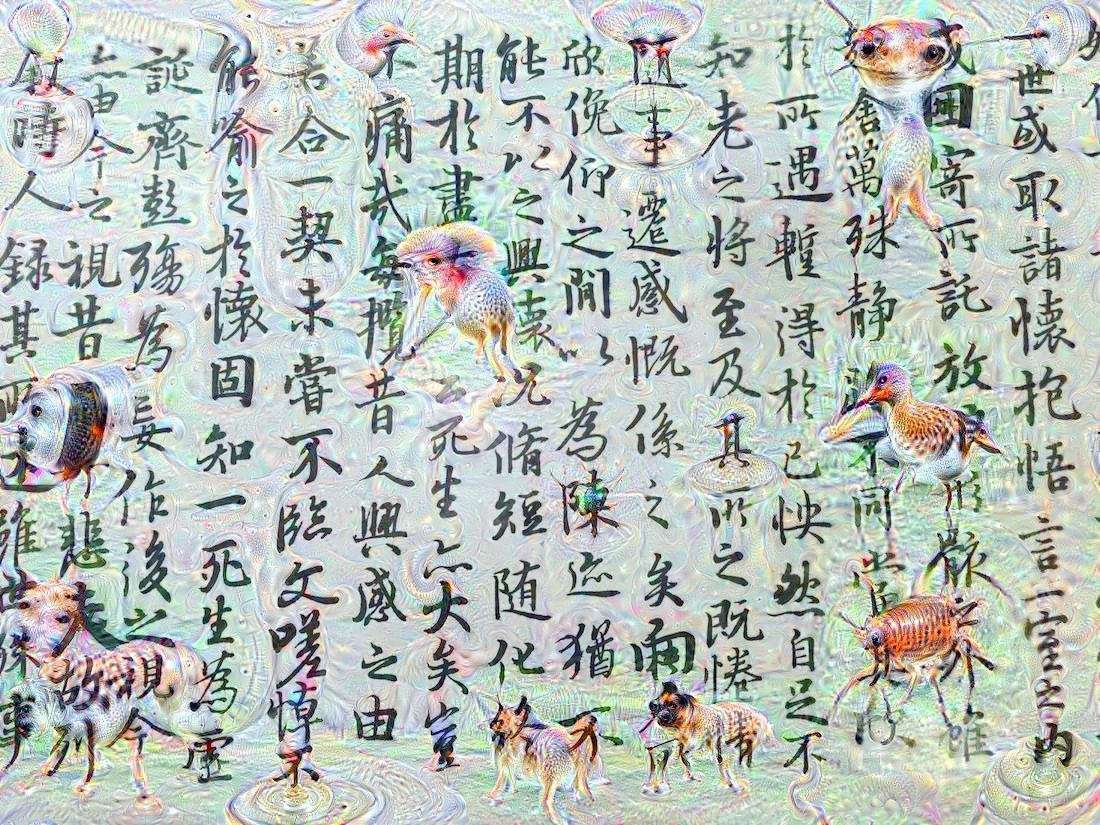 世或取諸懷抱悟言一室之內
因寄所託放形骸雖
舍萬殊静不同當
於所遇蹔得於己怏然自足不
知老之將至及其所之既惓情
事遷感慨係之矣向
欣俛仰之閒以為陳迹猶不
能不以之興懷况脩短随化
期於盡云死生亦大矣豈
不痛哉每攬昔人興感之由
若合一契未嘗不臨文嗟悼不
能喻之於懷固知一死生為虛
誕齊彭殤為妄作後之視今
亦由今之視昔悲夫故
時人録其所述雖世殊事